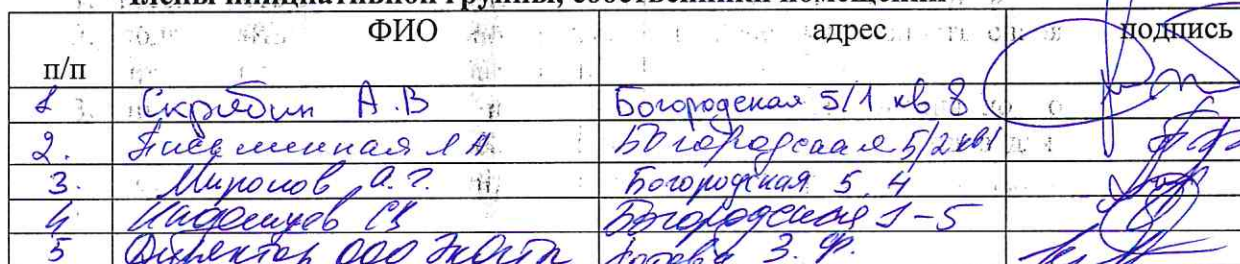 Члены инициативной группы, собственники помещений
п/п ФИО адрес подпись
1 Скрябин А.В Богородская 5/1 кв 8
2. Письменная А Богородская 5/2 кв1
3. Миронов А.Г. Богородская 5 4
4 СВ Богородская 1-5
5 Директор ООО З.Ф.